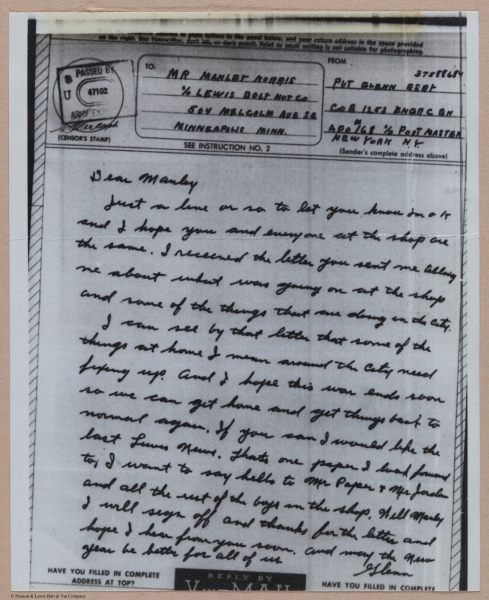 address in plain letters in the panel below, and your return address in the space provided
on the right. Use typewriter, dark ink, or dark pencil. Faint or small writing is not suitable for photographing.
PASSED BY
U
47102
ARMY EX
(CENSOR'S STAMP)
TO:
MR MANLEY NORRIS
℅ LEWIS BOLT NUT CO
504 MELCOLM AVE SE
MINNEAPOLIS MINN.
SEE INSTRUCTION NO. 2
FROM
37088684
PVT GLENN
CO B 1253 ENGRC BN
APO 168 ℅ POSTMASTER
NEW YORK N.Y
(Sender's complete address above)
Dear Manley
Just a line or so to let you know Im ok
and I hope you and everyone at the shop are
the same. I received the letter you sent me telling
me about what was going on at the shop
and some of the things that are doing in the city.
I can see by that letter that some of the
things at home I mean around the city need
fixing up. And I hope this war ends soon
so we can get home and get things back to
normal again. If you can I would like the
last Lewis News. Thats one paper I look forward
to, I want to say hello to Mr Paper & Mr Jordan
and all the rest of the boys in the shop. Well Manley
I will sign off and thanks for the letter and
hope I hear from you soon, and may the New
year be better for all of us
Glenn
HAVE YOU FILLED IN COMPLETE
ADDRESS AT TOP?
REPLY BY
V-MAIL
HAVE YOU FILLED IN COMPLETE
© Propety & Lewis Bolt & Nut Company